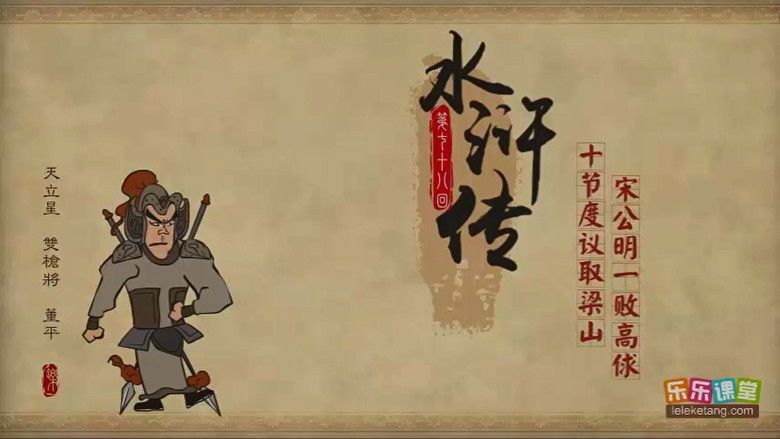 水浒传
第七十八回
十节度议取梁山
宋公明一败高俅
天立星 雙槍將 董平
乐乐课堂
leleketang.com